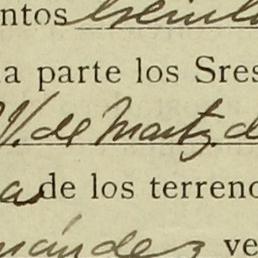 ntos
a parte los Sres
V. de Martz. d
a de los terreno
nández ve